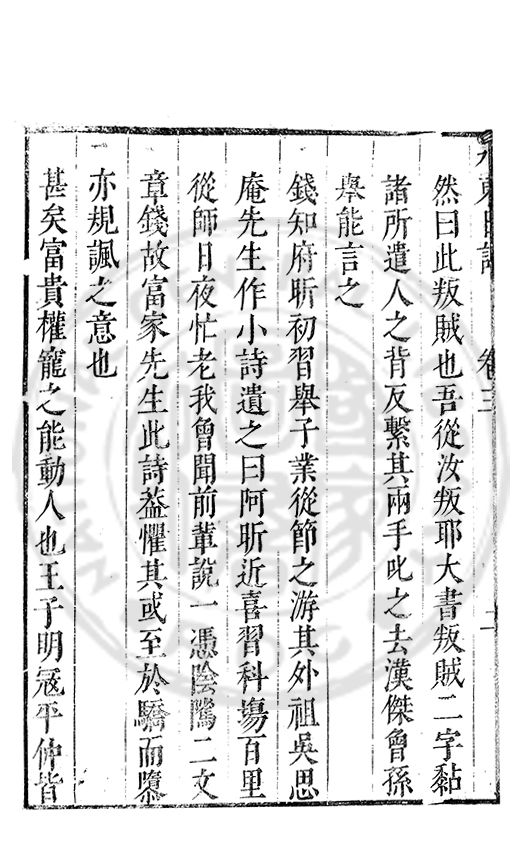 水東日記 卷三 二
然曰此叛賊也吾從汝叛耶大書叛賊二字黏
諸所遣人之背反繫其兩手叱之去漢傑曾孫
舉能言之
錢知府昕初習舉子業從節之游其外祖吳思
庵先生作小詩遺之曰阿昕近喜習科塲百里
從師日夜忙老我曾聞前輩說一憑陰隲二文
章錢故富家先生此詩葢懼其或至於驕而隳
亦規諷之意也
甚矣富貴權寵之能動人也王子明寇平仲皆